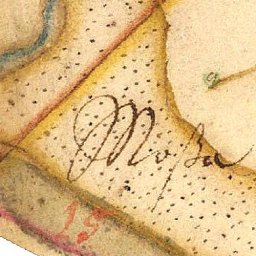 Moßa
15